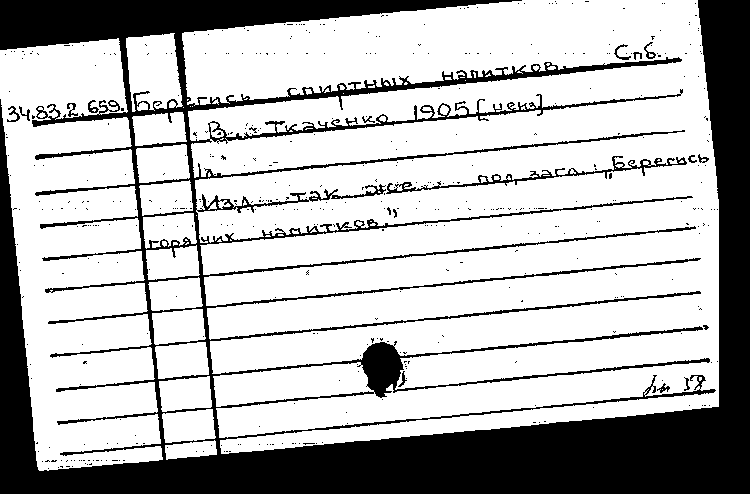 34.83.2.659. Берегись спиртных напитков. Спб.
В. Ткаченко 1905 [цена]
1л.
Изд. так же под загл.: „Берегись
горячих напитков."